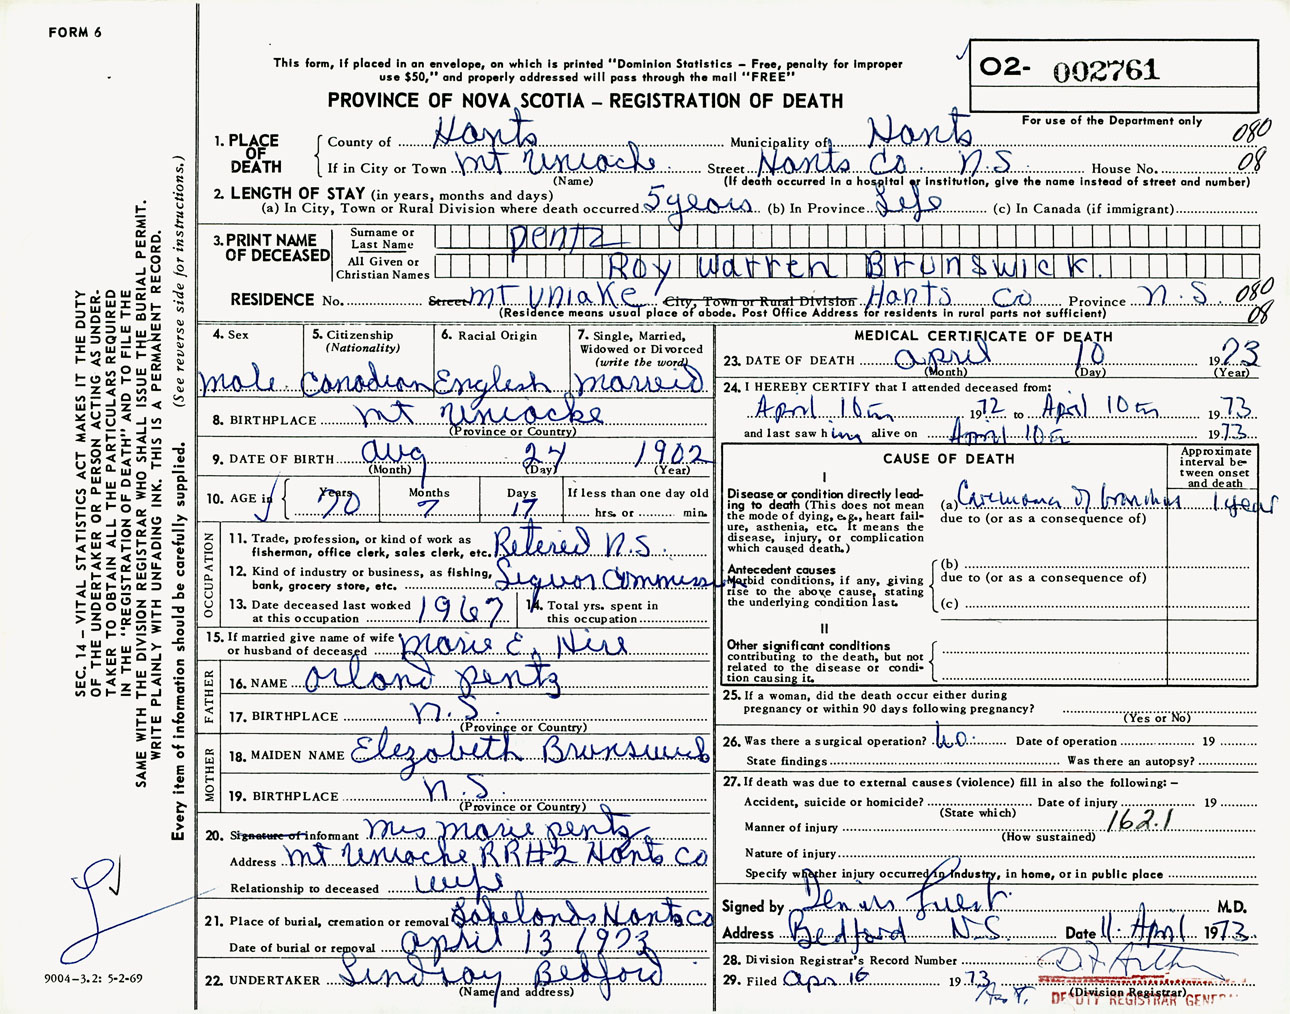 FORM 6
This form, if placed in an envelope, on which is printed "Dominion Statistics – Free, penalty for improper
use $50," and properly addressed will pass through the mail "FREE"
O2- 002761
For use of the Department only
PROVINCE OF NOVA SCOTIA – REGISTRATION OF DEATH
1. PLACE OF DEATH County of Hants Municipality of Hants 080
If in City or Town Mt Uniacke Street Hants Co N.S House No. 08
(Name) (If death occurred in a hospital or institution, give the name instead of street and number)
2. LENGTH OF STAY (in years, months and days)
(a) In City, Town or Rural Division where death occurred 5 years (b) In Province Life (c) In Canada (if immigrant)
3. PRINT NAME OF DECEASED
Surname or Last Name Pentz
All Given or Christian Names Roy Warren Brunswick
RESIDENCE No. Street Mt Uniake City, Town or Rural Division Hants Co Province N.S 080
(Residence means usual place of abode. Post Office Address for residents in rural parts not sufficient) 08
4. Sex
male
5. Citizenship
(Nationality)
Canadian
6. Racial Origin
English
7. Single, Married,
Widowed or Divorced
(write the word)
married
8. BIRTHPLACE Mt Uniacke
(Province or Country)
9. DATE OF BIRTH Aug 24 1902
(Month) (Day) (Year)
10. AGE in Years 70 Months 7 Days 17 If less than one day old
hrs. or min.
OCCUPATION
11. Trade, profession, or kind of work as
fisherman, office clerk, sales clerk, etc. Retered N.S.
12. Kind of industry or business, as fishing,
bank, grocery store, etc. Liquor Commission
13. Date deceased last worked
at this occupation 1967
14. Total yrs. spent in
this occupation
15. If married give name of wife
or husband of deceased Marie E.
FATHER
16. NAME Orland Pentz
17. BIRTHPLACE N.S.
(Province or Country)
MOTHER
18. MAIDEN NAME Elezabeth Brunswick
19. BIRTHPLACE N.S.
(Province or Country)
20. Signature of informant Mrs Marie Pentz
Address Mt Uniacke RR#2 Hants Co
Relationship to deceased wife
21. Place of burial, cremation or removal Lakelands Hants Co
Date of burial or removal April 13 1973
22. UNDERTAKER Lindsay Bedford
(Name and address)
MEDICAL CERTIFICATE OF DEATH
23. DATE OF DEATH April 10 1973
(Month) (Day) (Year)
24. I HEREBY CERTIFY that I attended deceased from:
April 10th 1972 to April 10th 1973
and last saw him alive on April 10th 1973
CAUSE OF DEATH
Approximate
interval be-
tween onset
and death
I
Disease or condition directly lead-
ing to death (This does not mean
the mode of dying, e.g., heart fail-
ure, asthenia, etc. It means the
disease, injury, or complication
which caused death.)
(a) Carcinoma of bronchus 1 year
due to (or as a consequence of)
Antecedent causes
Morbid conditions, if any, giving
rise to the above cause, stating
the underlying condition last.
(b)
due to (or as a consequence of)
(c)
II
Other significant conditions
contributing to the death, but not
related to the disease or condi-
tion causing it.
25. If a woman, did the death occur either during
pregnancy or within 90 days following pregnancy?
(Yes or No)
26. Was there a surgical operation? No. Date of operation 19
State findings Was there an autopsy?
27. If death was due to external causes (violence) fill in also the following: –
Accident, suicide or homicide? Date of injury 19
(State which)
Manner of injury 162.1
(How sustained)
Nature of injury
Specify whether injury occurred in industry, in home, or in public place
Signed by Dennis M.D.
Address Bedford N.S. Date 11 April 1973
28. Division Registrar's Record Number
29. Filed Apr 16 1973
(Division Registrar)
DEPUTY REGISTRAR GENERAL
SEC. 14 – VITAL STATISTICS ACT MAKES IT THE DUTY
OF THE UNDERTAKER OR PERSON ACTING AS UNDER-
TAKER TO OBTAIN ALL THE PARTICULARS REQUIRED
IN THE "REGISTRATION OF DEATH" AND TO FILE THE
SAME WITH THE DIVISION REGISTRAR WHO SHALL ISSUE THE BURIAL PERMIT.
WRITE PLAINLY WITH UNFADING INK. THIS IS A PERMANENT RECORD.
Every item of information should be carefully supplied. (See reverse side for instructions.)
9004–3.2: 5-2-69